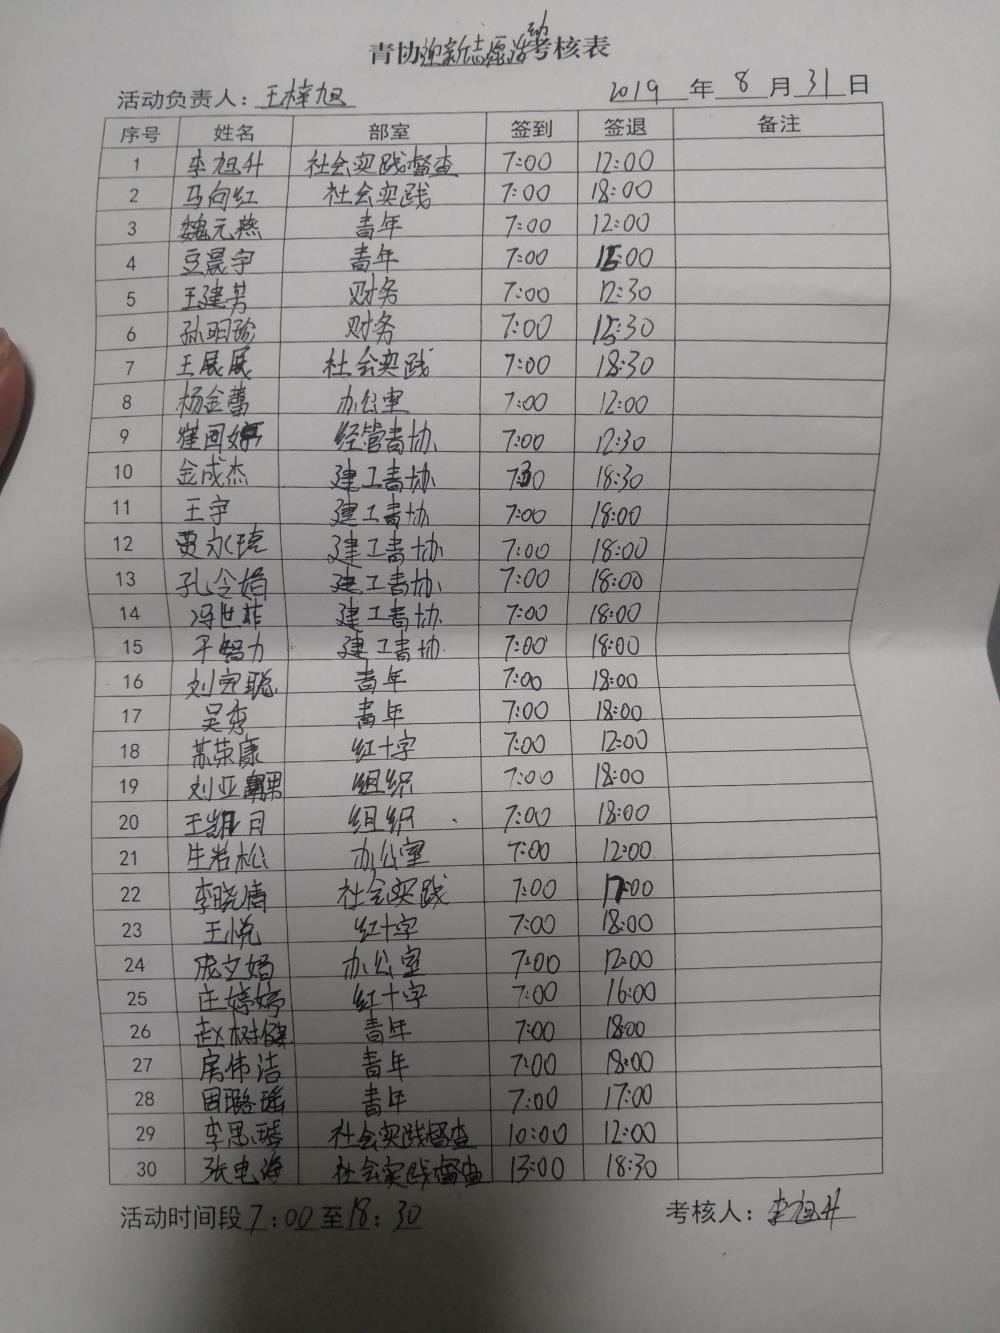 青协迎新志愿活动考核表
活动负责人：王梓旭 2019年8月31日
序号 姓名 部室 签到 签退 备注
1 李旭升 社会实践督查 7:00 12:00
2 马向红 社会实践 7:00 18:00
3 魏元燕 青年 7:00 12:00
4 豆晨宇 青年 7:00 15:00
5 王建芳 财务 7:00 12:30
6 孙明珍 财务 7:00 15:30
7 王展展 社会实践 7:00 18:30
8 杨金蕾 办公室 7:00 12:00
9 崔国婷 经管青协 7:00 12:30
10 金成杰 建工青协 7:30 18:30
11 王宇 建工青协 7:00 18:00
12 贾永琦 建工青协 7:00 18:00
13 孔令娟 建工青协 7:00 18:00
14 冯世菲 建工青协 7:00 18:00
15 于智力 建工青协 7:00 18:00
16 刘宪聪 青年 7:00 18:00
17 吴秀 青年 7:00 18:00
18 苏荣康 红十字 7:00 12:00
19 刘亚男 组织 7:00 18:00
20 王凯月 组织 7:00 18:00
21 生岩松 办公室 7:00 12:00
22 李晓倩 社会实践 7:00 17:00
23 王悦 红十字 7:00 18:00
24 庞文娟 办公室 7:00 12:00
25 庄婷婷 红十字 7:00 16:00
26 赵树健 青年 7:00 18:00
27 房伟洁 青年 7:00 18:00
28 田璐瑶 青年 7:00 17:00
29 李思 社会实践督查 10:00 12:00
30 张电海 社会实践督查 13:00 18:30
活动时间段7:00至18:30 考核人：李旭升